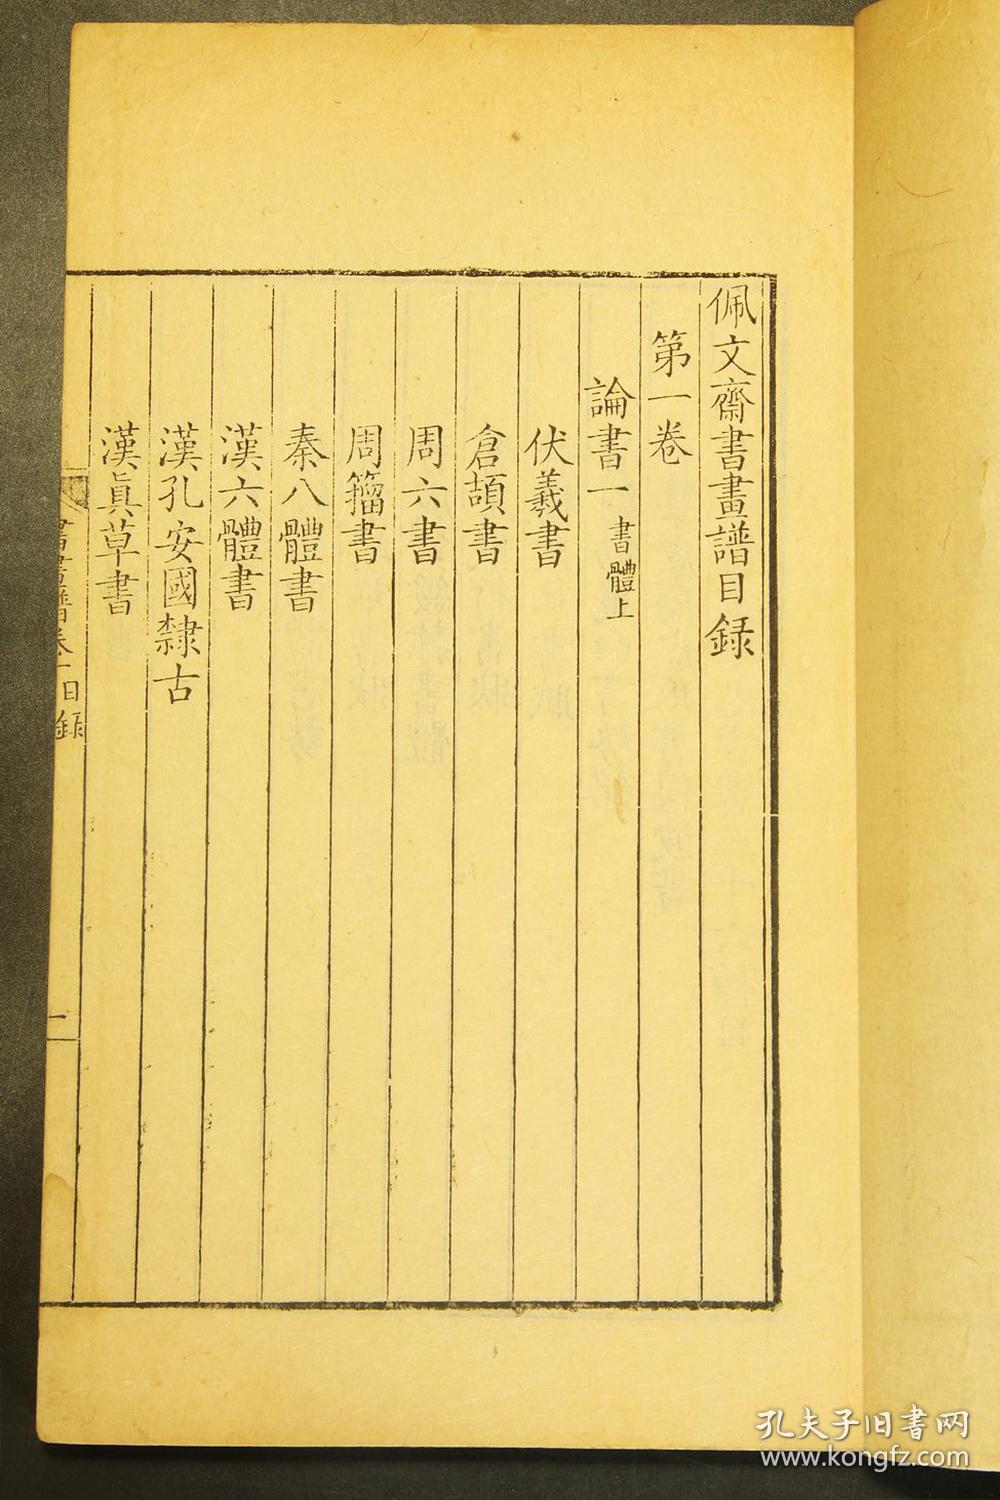 佩文齋書畫譜目録
第一卷
論書一 書體上
伏羲書
倉頡書
周六書
周籀書
秦八體書
漢六體書
漢孔安國隸古
漢眞草書
書畫譜卷一目録
一
孔夫子旧書网
www.kongfz.com